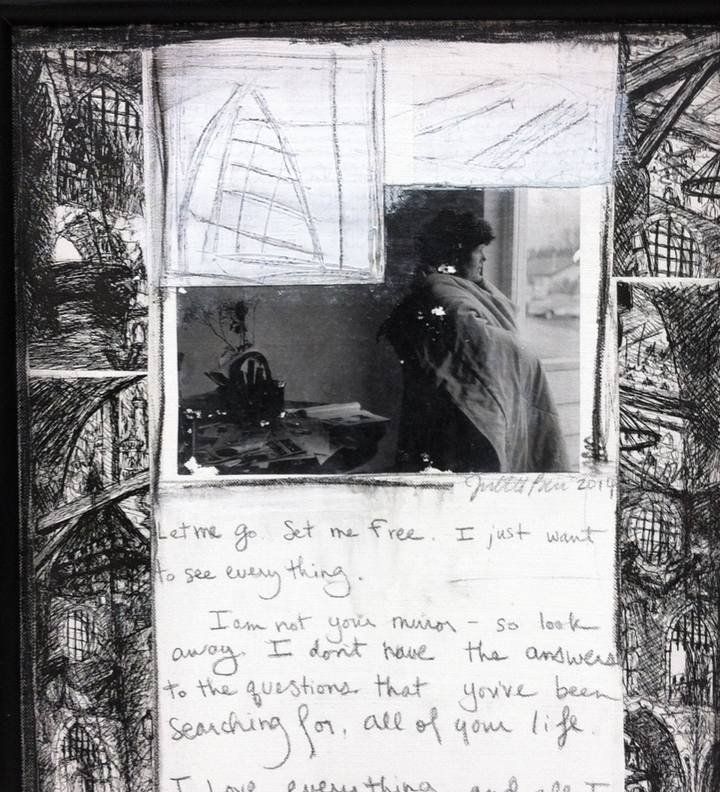 2014
Let me go. Set me free. I just want
to see everything.
I am not your mirror - so look
away. I don't have the answers
to the questions that you've been
searching for, all of your life.
I love everything and all I